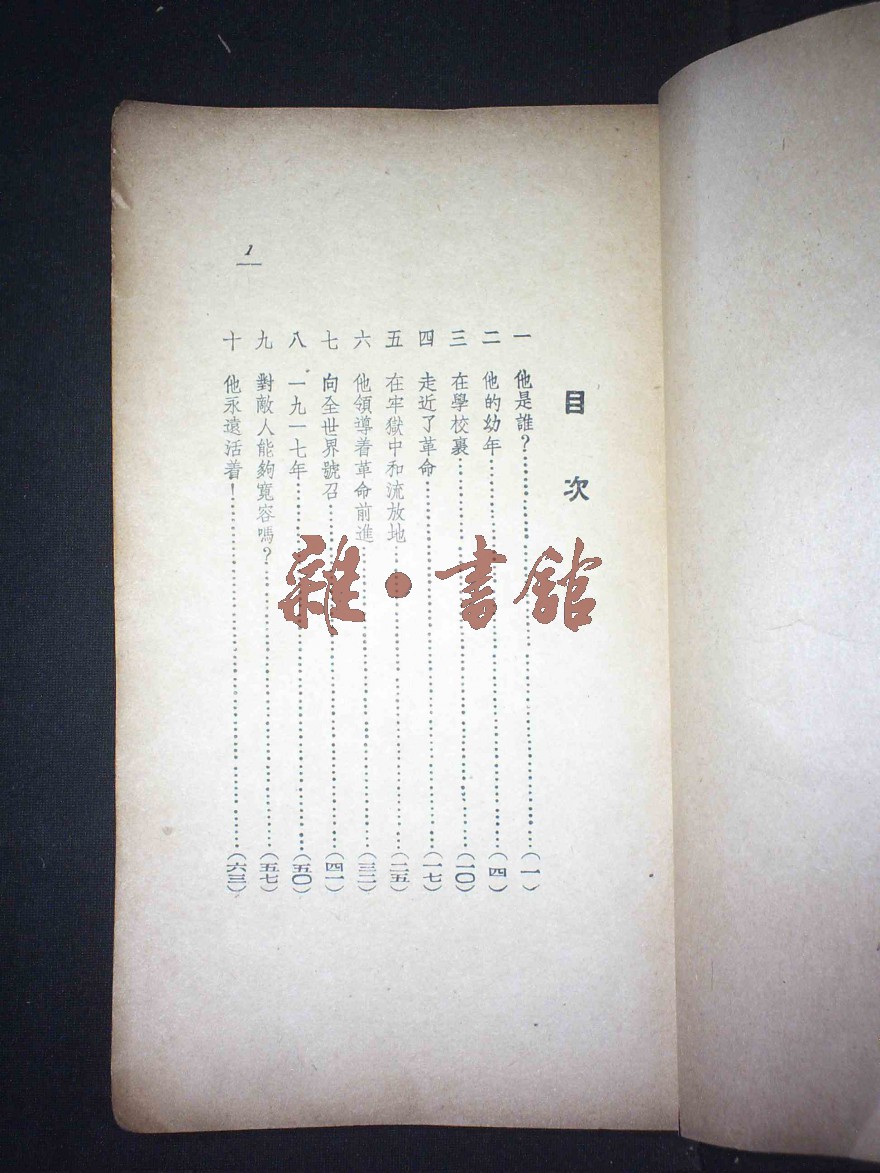 目次
一 他是誰？……(一)
二 他的幼年……(四)
三 在學校裏……(一〇)
四 走近了革命……(一七)
五 在牢獄中和流放地……(二五)
六 他領導着革命前進……(三二)
七 向全世界號召……(四一)
八 一九一七年……(五〇)
九 對敵人能夠寬容嗎？……(五七)
十 他永遠活着！……(六三)
1
雜·書館